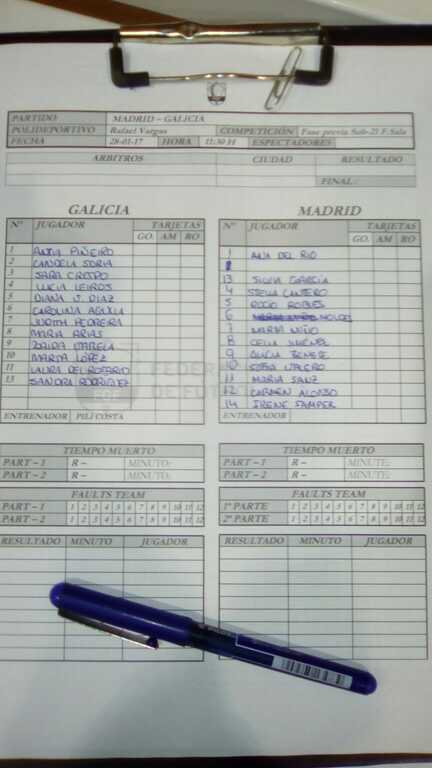 PARTIDO MADRID – GALICIA
POLIDEPORTIVO Rafael Vargas COMPETICIÓN Fase previa Sub-21 F.Sala
FECHA 28-01-17 HORA 11:30 H ESPECTADORES
ARBITROS CIUDAD RESULTADO
FINAL:
GALICIA
Nº JUGADOR TARJETAS
GO. AM RO
1 ANTIA PIÑEIRO
2 CANDELA SORIA
3 SARA CRESPO
4 LUCIA LEIROS
5 DIANA V. DIAZ
6 CAROLINA
7 JUDITH PEDREIRA
8 MARIA ARIAS
9 ZAIRA VARELA
10 MARTA LÓPEZ
11 LAURA DEL ROSARIO
13 SANDRA RODRIGUEZ
ENTRENADOR PILI COSTA
MADRID
Nº JUGADOR TARJETAS
GO. AM RO
1 ANA DEL RIO
13 SILVIA GARCÍA
4 STELLA CANTERO
5 ROCIO ROBLES
6
7 MARTA NIÑO
8 CELIA JIMÉNEZ
9 ALICIA
10 SOFIA
11 MARIA SANZ
12 CARMEN ALONSO
14 IRENE SAMPER
ENTRENADOR
TIEMPO MUERTO
PART – 1 R – MINUTO:
PART – 2 R – MINUTO:
FAULTS TEAM
PART – 1 1 2 3 4 5 6 7 8 9 10 11 12
PART – 2 1 2 3 4 5 6 7 8 9 10 11 12
RESULTADO MINUTO JUGADOR
TIEMPO MUERTO
PART – 1 R – MINUTE:
PART – 2 R – MINUTE:
FAULTS TEAM
1ª PARTE 1 2 3 4 5 6 7 8 9 10 11 12
2ª PARTE 1 2 3 4 5 6 7 8 9 10 11 12
RESULTADO MINUTO JUGADOR